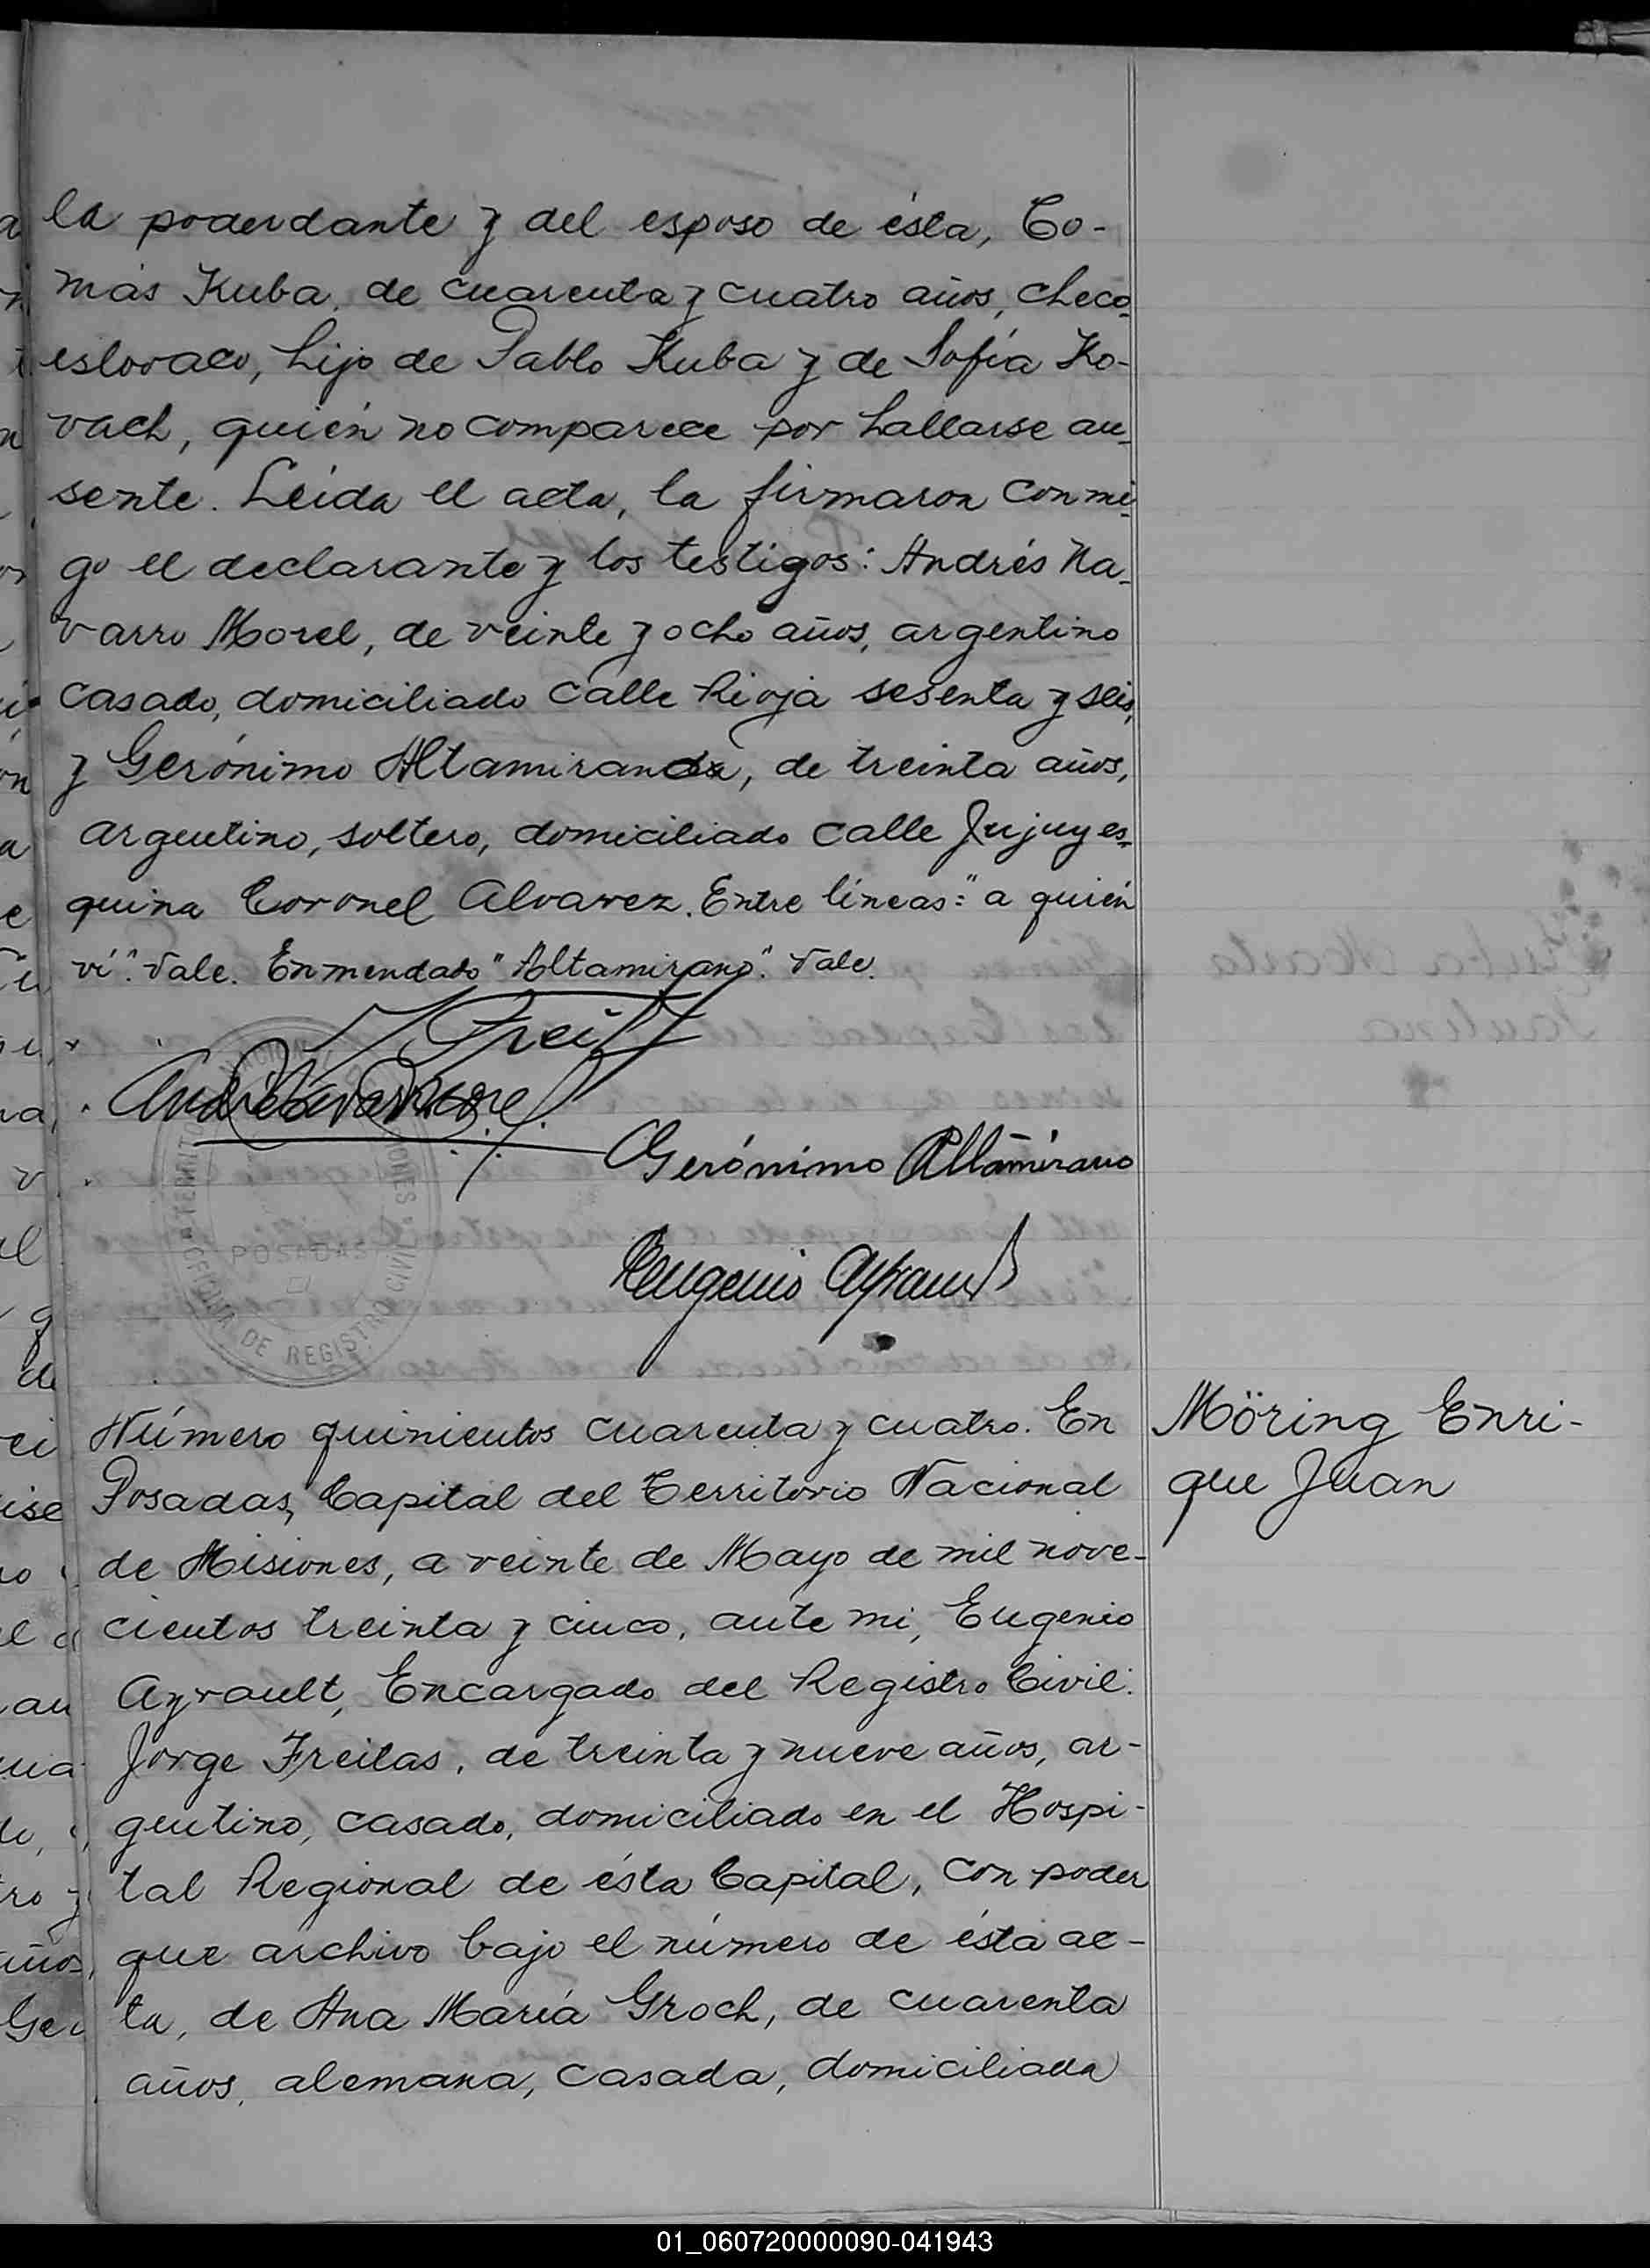 la poderdante y del esposo de ésta, To-
más Kuba, de cuarenta y cuatro años, checo
eslovaco, hijo de Pablo Kuba y de Sofía Ko-
vach, quién no comparece por hallarse au-
sente. Leída el acta, la firmaron conmi-
go el declarante y los testigos: Andrés Na-
varro Morel, de veinte y ocho años, argentino
casado, domiciliado calle Rioja sesenta y seis,
y Gerónimo Altamirano, de treinta años,
argentino, soltero, domiciliado calle Jujuy es-
quina Coronel Alvarez. Entre líneas: "a quién
ví". Vale. Enmendado "Altamirano". Vale.
Gerónimo Altamirano
Eugenio Ayrault
POSADAS
OFICINA DE REGISTRO CIVIL
Número quinientos cuarenta y cuatro. En
Posadas, Capital del Territorio Nacional
de Misiones, a veinte de Mayo de mil nove-
cientos treinta y cinco, ante mi, Eugenio
Ayrault, Encargado del Registro Civil:
Jorge Freitas, de treinta y nueve años, ar-
gentino, casado, domiciliado en el Hospi-
tal Regional de ésta Capital, con poder
que archivo bajo el número de ésta ac-
ta, de Ana María Groch, de cuarenta
años, alemana, casada, domiciliada
Möring Enri-
que Juan
01_060720000090-041943